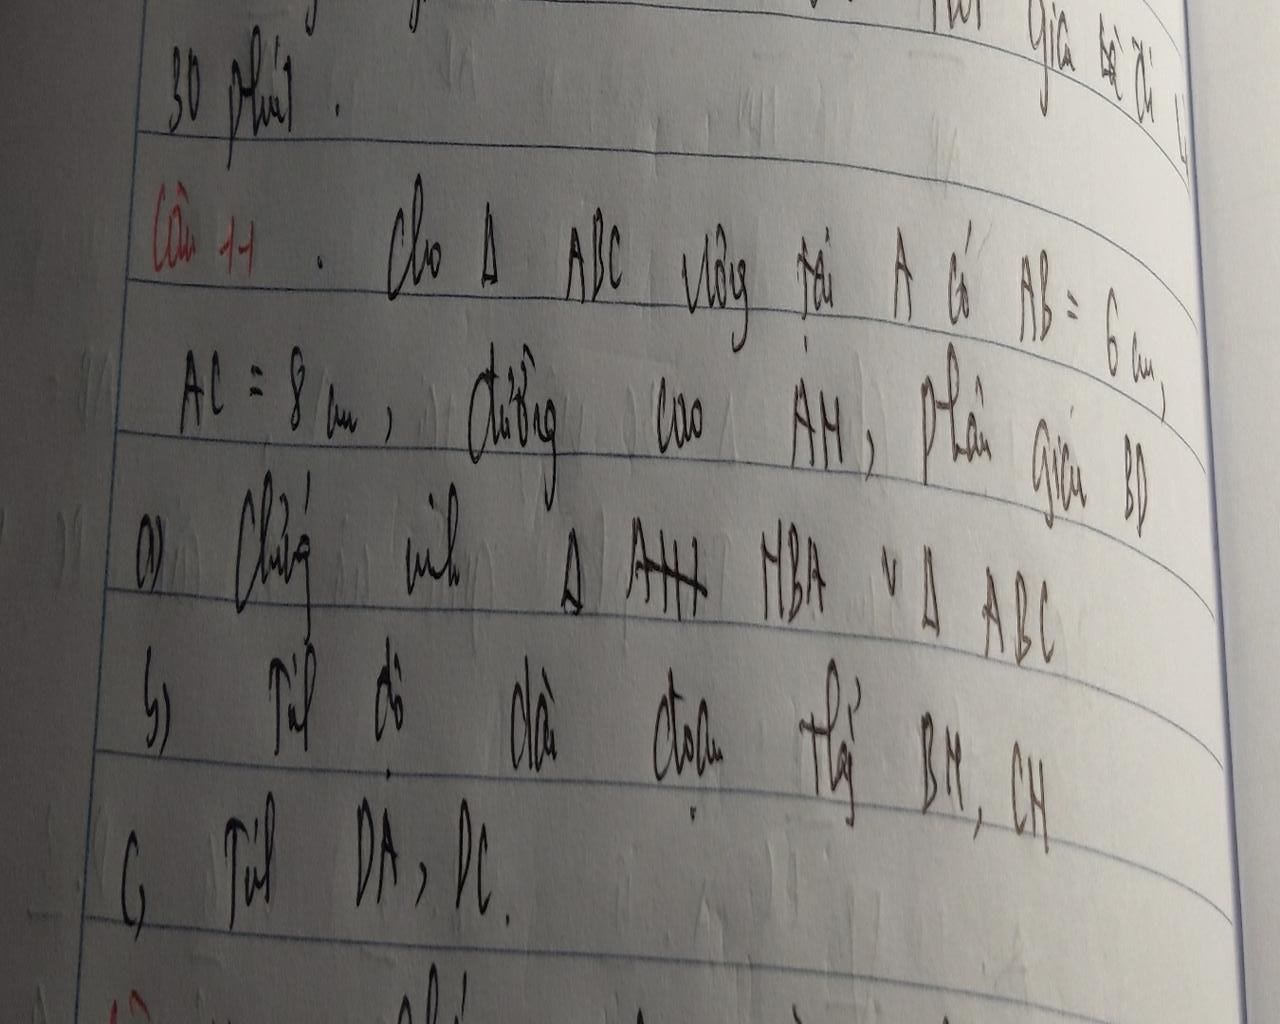 giữa
30 phút.
Câu 11. Cho Δ ABC vuông tại A có AB = 6 cm,
AC = 8 cm, đường cao AH, phân giác BD
a) Chứng minh Δ HBA ∽ Δ ABC
b) Tính độ dài đoạn thẳng BH, CH
c, Tính DA, DC.